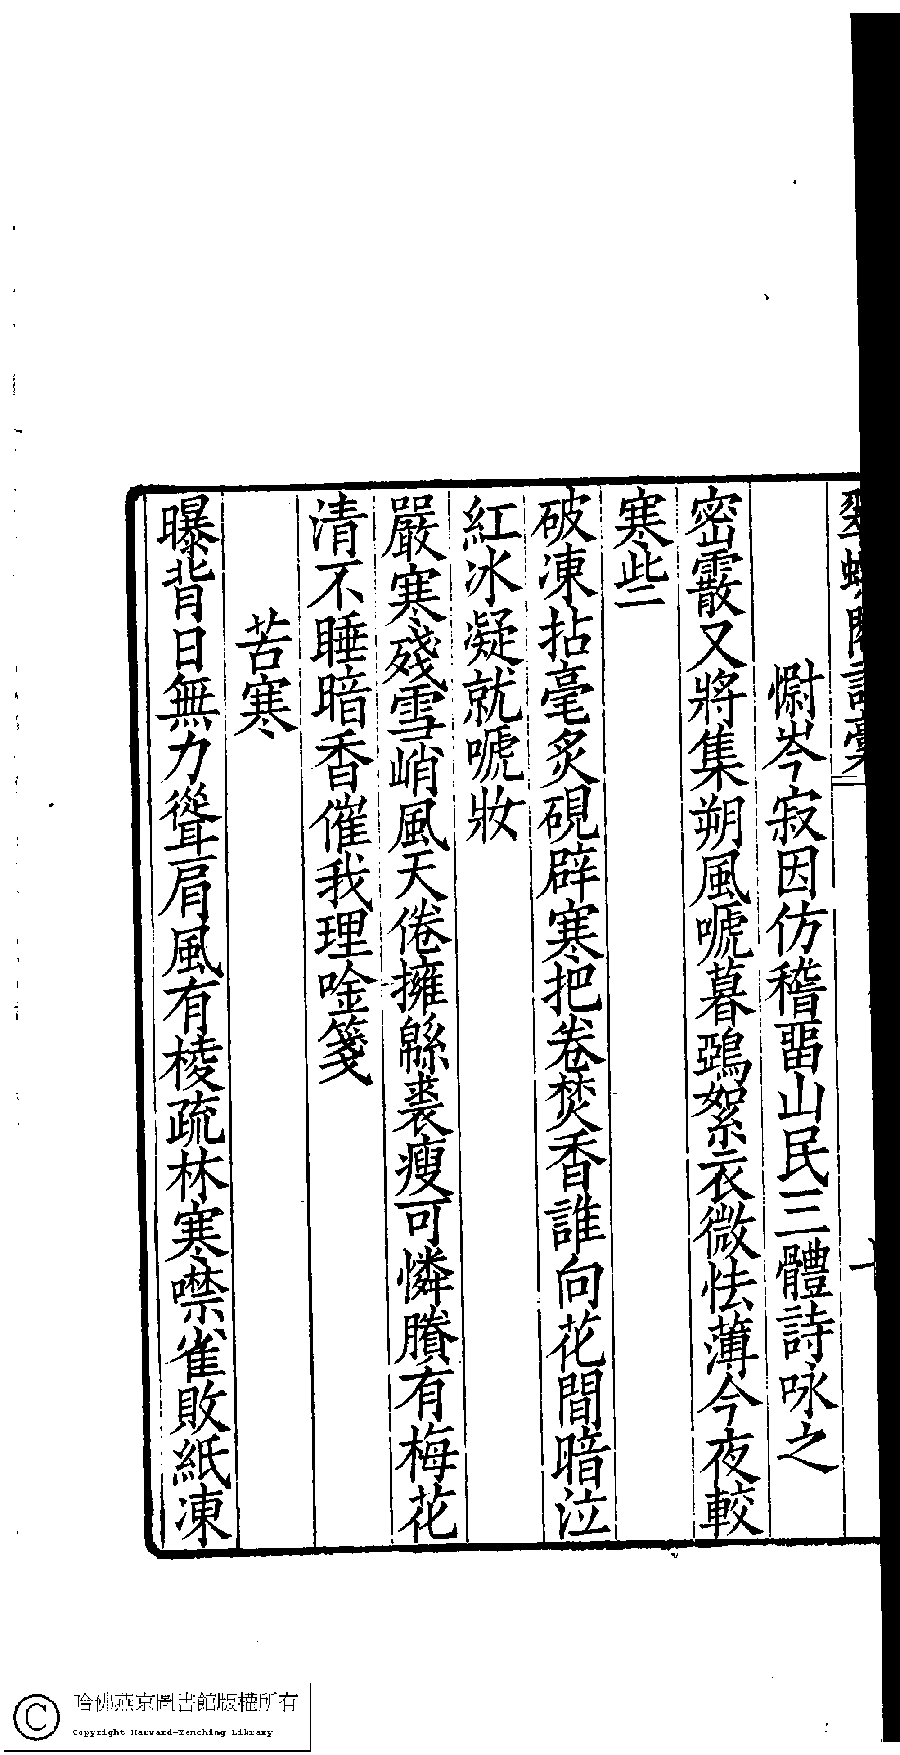 翠螺閣詩藁
十
懰岑寂因仿稽畱山民三體詩咏之
密霰又將集朔風嗁暮鵶絮衣微怯薄今夜較
寒些
破凍拈毫炙硯辟寒把卷焚香誰向花間暗泣
紅冰凝就嗁妝
嚴寒殘雪峭風天倦擁緜裘瘦可憐賸有梅花
清不睡暗香催我理唫箋
苦寒
曝背日無力聳肩風有棱疏林寒噤雀敗紙凍
哈佛燕京圖書館版權所有
Copyright Harvard-Yenching Library